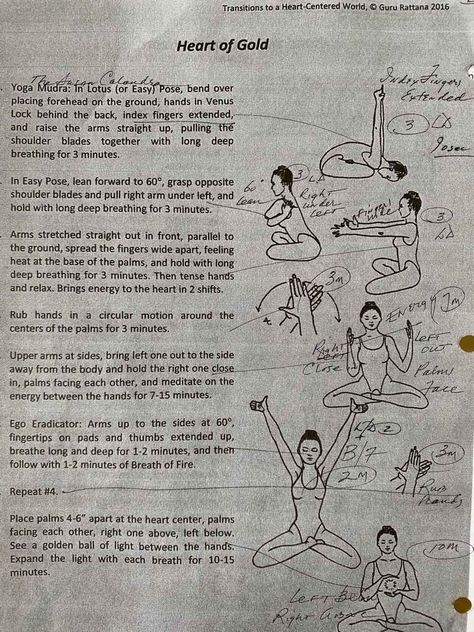 Transitions to a Heart-Centered World, © Guru Rattana 2016
Heart of Gold
Index Fingers
Extended
Yoga Mudra: In Lotus (or Easy) Pose, bend over
placing forehead on the ground, hands in Venus
Lock behind the back, index fingers extended,
and raise the arms straight up, pulling the
shoulder blades together with long deep
breathing for 3 minutes.
3 LD
In Easy Pose, lean forward to 60°, grasp opposite
shoulder blades and pull right arm under left, and
hold with long deep breathing for 3 minutes.
60°
lean
3
LD
Right
under
Left
Arms stretched straight out in front, parallel to
the ground, spread the fingers wide apart, feeling
heat at the base of the palms, and hold with long
deep breathing for 3 minutes. Then tense hands
and relax. Brings energy to the heart in 2 shifts.
3
LD
Rub hands in a circular motion around the
centers of the palms for 3 minutes.
3m
4.
Upper arms at sides, bring left one out to the side
away from the body and hold the right one close
in, palms facing each other, and meditate on the
energy between the hands for 7-15 minutes.
Energy
7m
Right
Close
Left
Out
Palms
Face
Ego Eradicator: Arms up to the sides at 60°,
fingertips on pads and thumbs extended up,
breathe long and deep for 1-2 minutes, and then
follow with 1-2 minutes of Breath of Fire.
LD 2
+
B/F
2 M
Repeat #4.
3m
Rub
Hands
Place palms 4-6" apart at the heart center, palms
facing each other, right one above, left below.
See a golden ball of light between the hands.
Expand the light with each breath for 10-15
minutes.
10m
Left Below
Right Above